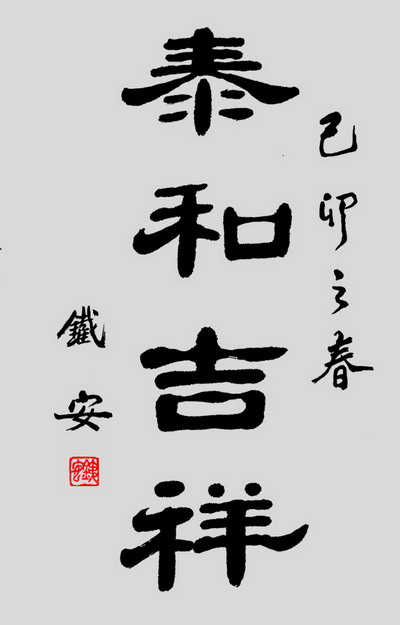 己卯之春
泰和吉祥
鐵安